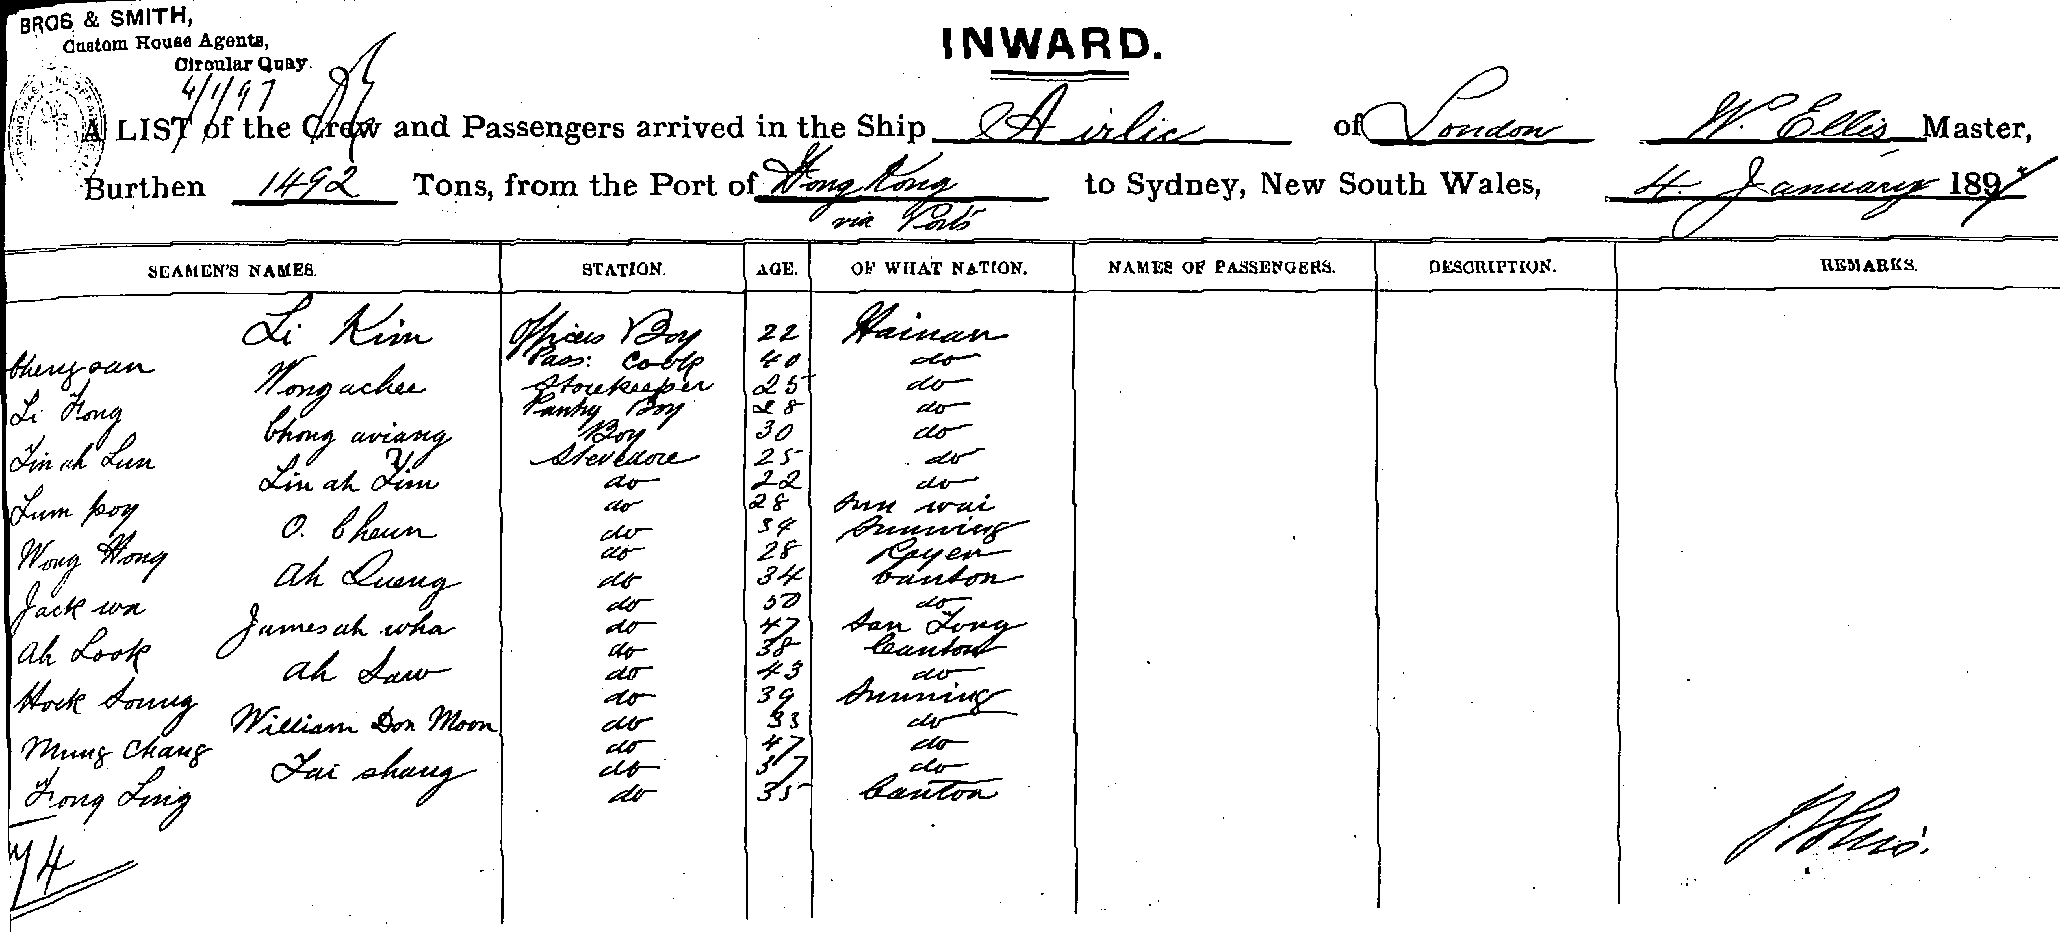 BROS & SMITH,
Custom House Agents,
Circular Quay.
4/1/97
INWARD.
A LIST of the Crew and Passengers arrived in the Ship Airlie of London W. Ellis Master,
Burthen 1492 Tons, from the Port of Hong Kong to Sydney, New South Wales, 4 January 1897
via Ports
SEAMEN'S NAMES. STATION. AGE. OF WHAT NATION. NAMES OF PASSENGERS. DESCRIPTION. REMARKS.
Li Kim Officers Boy 22 Hainan
Cheng san Pass: Cook 40 do
Wong achee Storekeeper 25 do
Li Fong Pantry Boy 28 do
Chong aviang Boy 30 do
Lin ah Lun Stevedore 25 do
Lin ah Lim do 22 do
Lum poy do 28 Sun wai
O. Cheun do 34 Sunning
Wong Hong do 28 Koyen
Ah Queng do 34 Canton
Jack wa do 50 do
James ah wha do 47 San Tong
Ah Look do 38 Canton
Ah Saw do 43 do
Hock Soung do 39 Sunning
William Don Moon do 33 do
Mung Chang do 47 do
Tai shang do 37 do
Fong Ling do 35 Canton
74